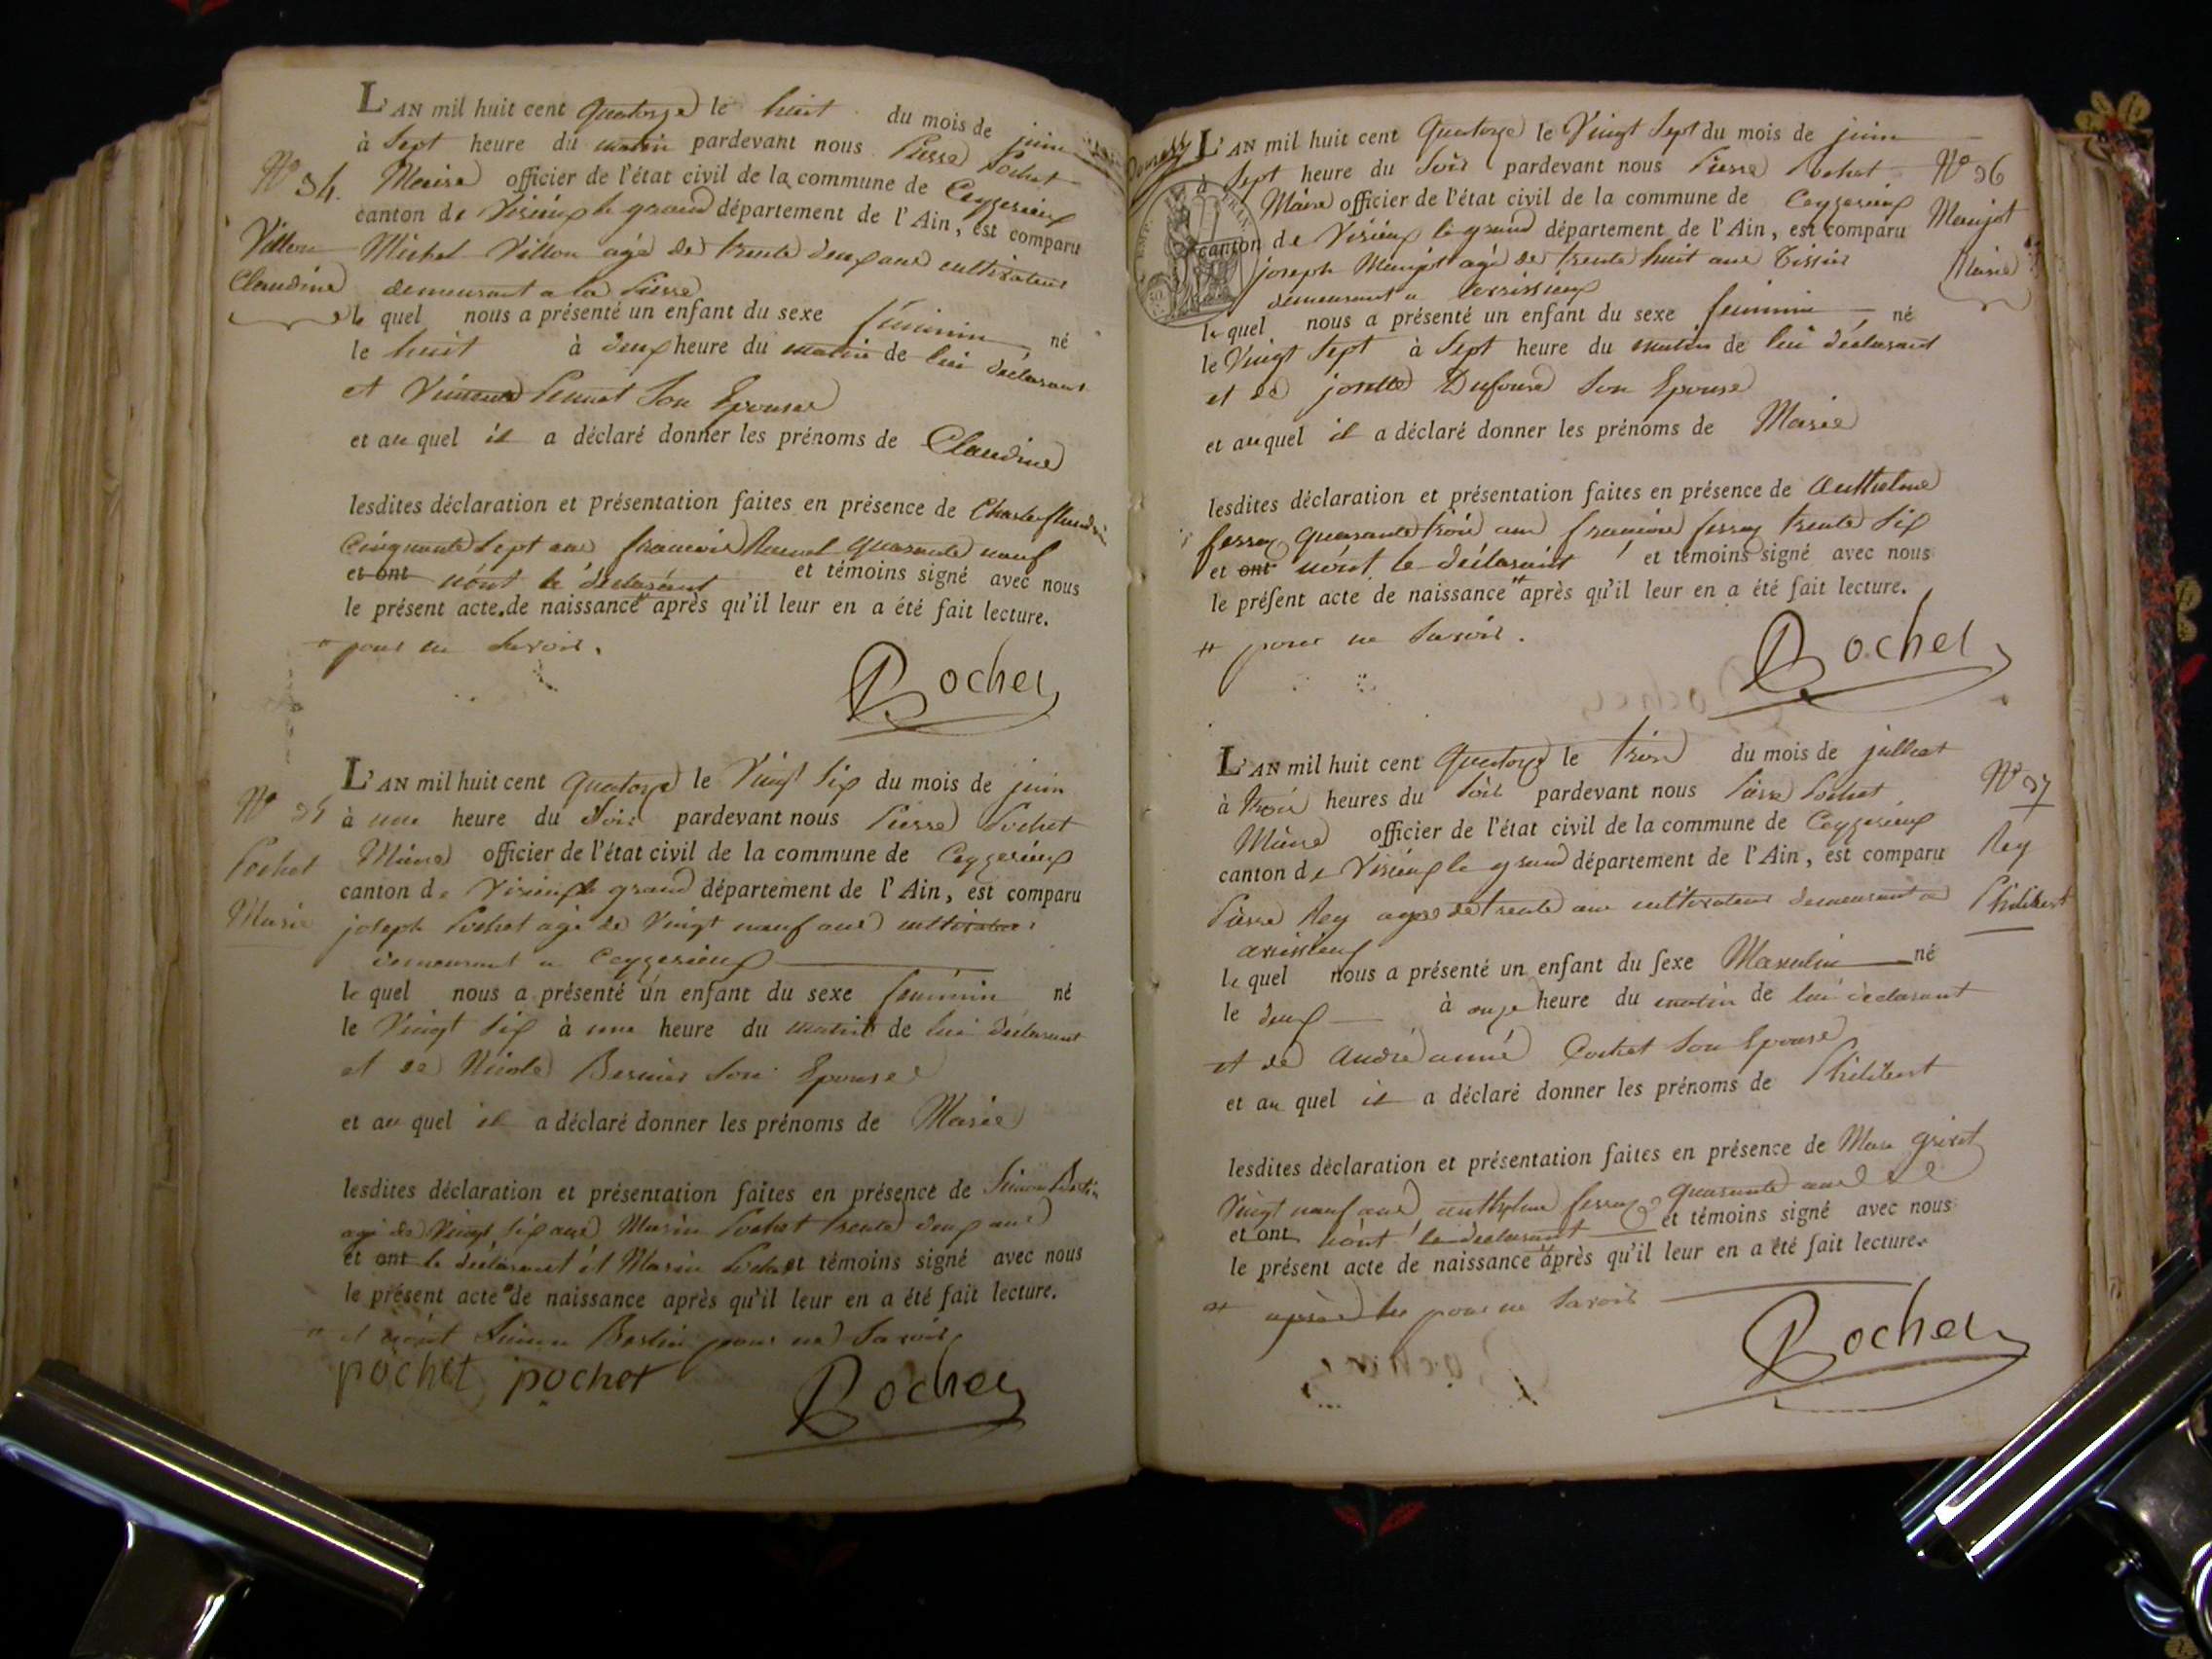 L'AN mil huit cent quatorze le huit du mois de juin
à Sept heure du matin pardevant nous Pierre Pochet
Maire officier de l'état civil de la commune de Ceyzerieux
canton de Virieux le grand département de l'Ain, est comparu
Michel Villon agé de trente deux ans cultivateur
demeurant a la Pierre
le quel nous a présenté un enfant du sexe féminin né
le huit à deux heure du matin de lui déclarant
et son Epouse
et au quel il a déclaré donner les prénoms de Claudine
lesdites déclaration et présentation faites en présence de Charles
Cinquante Sept ans francois quarante neuf
et ont n'ont le déclarant et témoins signé avec nous
le présent acte de naissance # après qu'il leur en a été fait lecture.
# pour ne savoir.
Pochet
N° 34.
Villon
Claudine
L'AN mil huit cent quatorze le Vingt Six du mois de juin
à une heure du Soir pardevant nous Pierre Pochet
Maire officier de l'état civil de la commune de Ceyzerieux
canton de Virieux le grand département de l'Ain, est comparu
joseph Pochet agé de Vingt neuf ans cultivateur
demeurant a Ceyzerieux
le quel nous a présenté un enfant du sexe féminin né
le Vingt Six à une heure du matin de lui déclarant
et de Nicole Bernier Son Epouse
et au quel il a déclaré donner les prénoms de Marie
lesdites déclaration et présentation faites en présence de Simon Berlin
agé de Vingt Six ans Marin Pochet trente deux ans
et ont le déclarant et Marin Pochet et témoins signé avec nous
le présent acte # de naissance après qu'il leur en a été fait lecture.
# et n'ont Simon Berlin pour ne Savoir
pochet pochet Pochet
N° 35
Pochet
Marie
L'AN mil huit cent Quatorze le Vingt Sept du mois de juin
à Sept heure du Soir pardevant nous Pierre Pochet
Maire officier de l'état civil de la commune de Ceyzerieux
canton de Virieux le grand département de l'Ain, est comparu
joseph Manjot agé de trente huit ans Tissier
demeurant a
le quel nous a présenté un enfant du sexe feminin né
le Vingt Sept à Sept heure du matin de lui déclarant
et de Dufour Son Epouse
et au quel il a déclaré donner les prénoms de Marie
lesdites déclaration et présentation faites en présence de Anthelme
ferroz quarante trois ans francois ferroz trente Six
et ont n'ont le déclarant et témoins signé avec nous
le présent acte de naissance # après qu'il leur en a été fait lecture.
# pour ne Savoir.
Pochet
N° 36
Manjot
Marie
L'AN mil huit cent Quatorze le trois du mois de julliet
à trois heures du Soir pardevant nous Pierre Pochet
Maire officier de l'état civil de la commune de Ceyzerieux
canton de Virieux le grand département de l'Ain, est comparu
Pierre Rey agé de trente ans cultivateur demeurant a
avrissieux
le quel nous a présenté un enfant du sexe Masculin né
le deux à onze heure du matin de lui déclarant
et de André anné Cochet Son Epouse
et au quel il a déclaré donner les prénoms de Philibert
lesdites déclaration et présentation faites en présence de Marc grivet
Vingt neuf ans anthelme ferroz quarante ans
et ont n'ont le déclarant et témoins signé avec nous
le présent acte de naissance # après qu'il leur en a été fait lecture.
# pour ne Savoir
Pochet
N° 37
Rey
Philibert